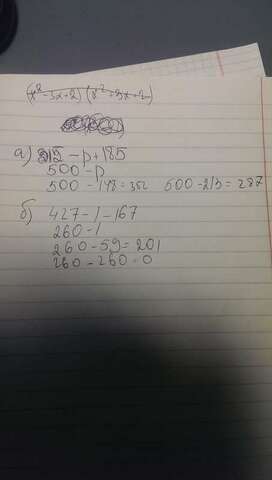 (x²-3x+2)(x²+3x+2)
а) 315 - p + 185
500 - p
500 - 148 = 352 500 - 213 = 287
б) 427 - l - 167
260 - l
260 - 59 = 201
260 - 260 = 0